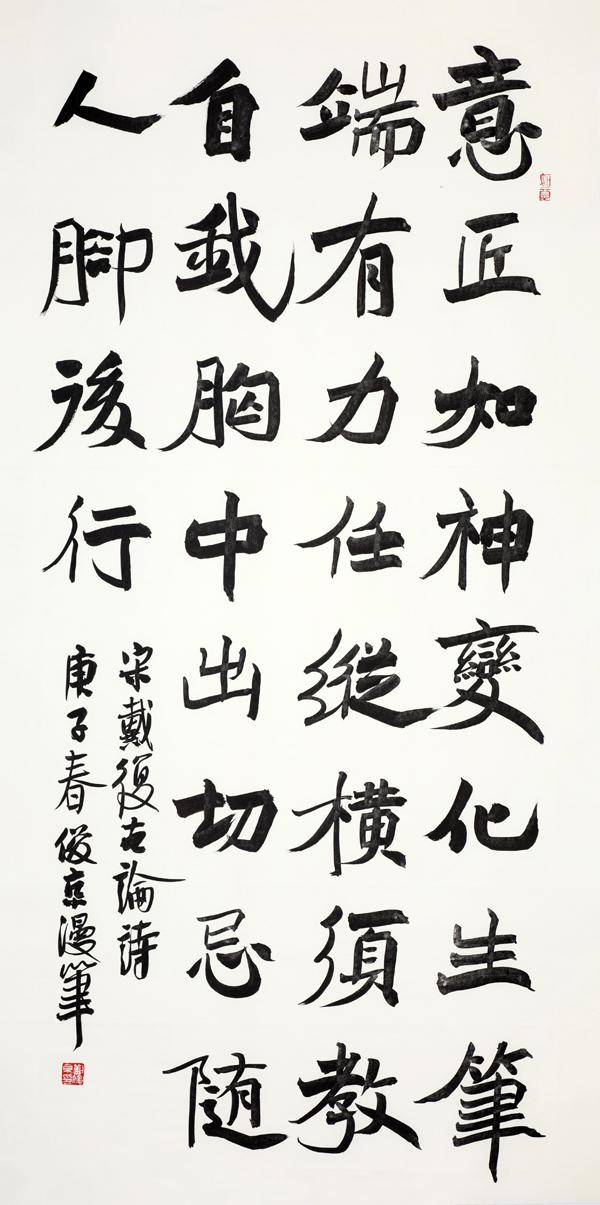 意匠如神變化生筆
端有力任縱橫須教
自我胸中出切忌隨
人腳後行
宋戴復古論詩
庚子春俊京漫筆